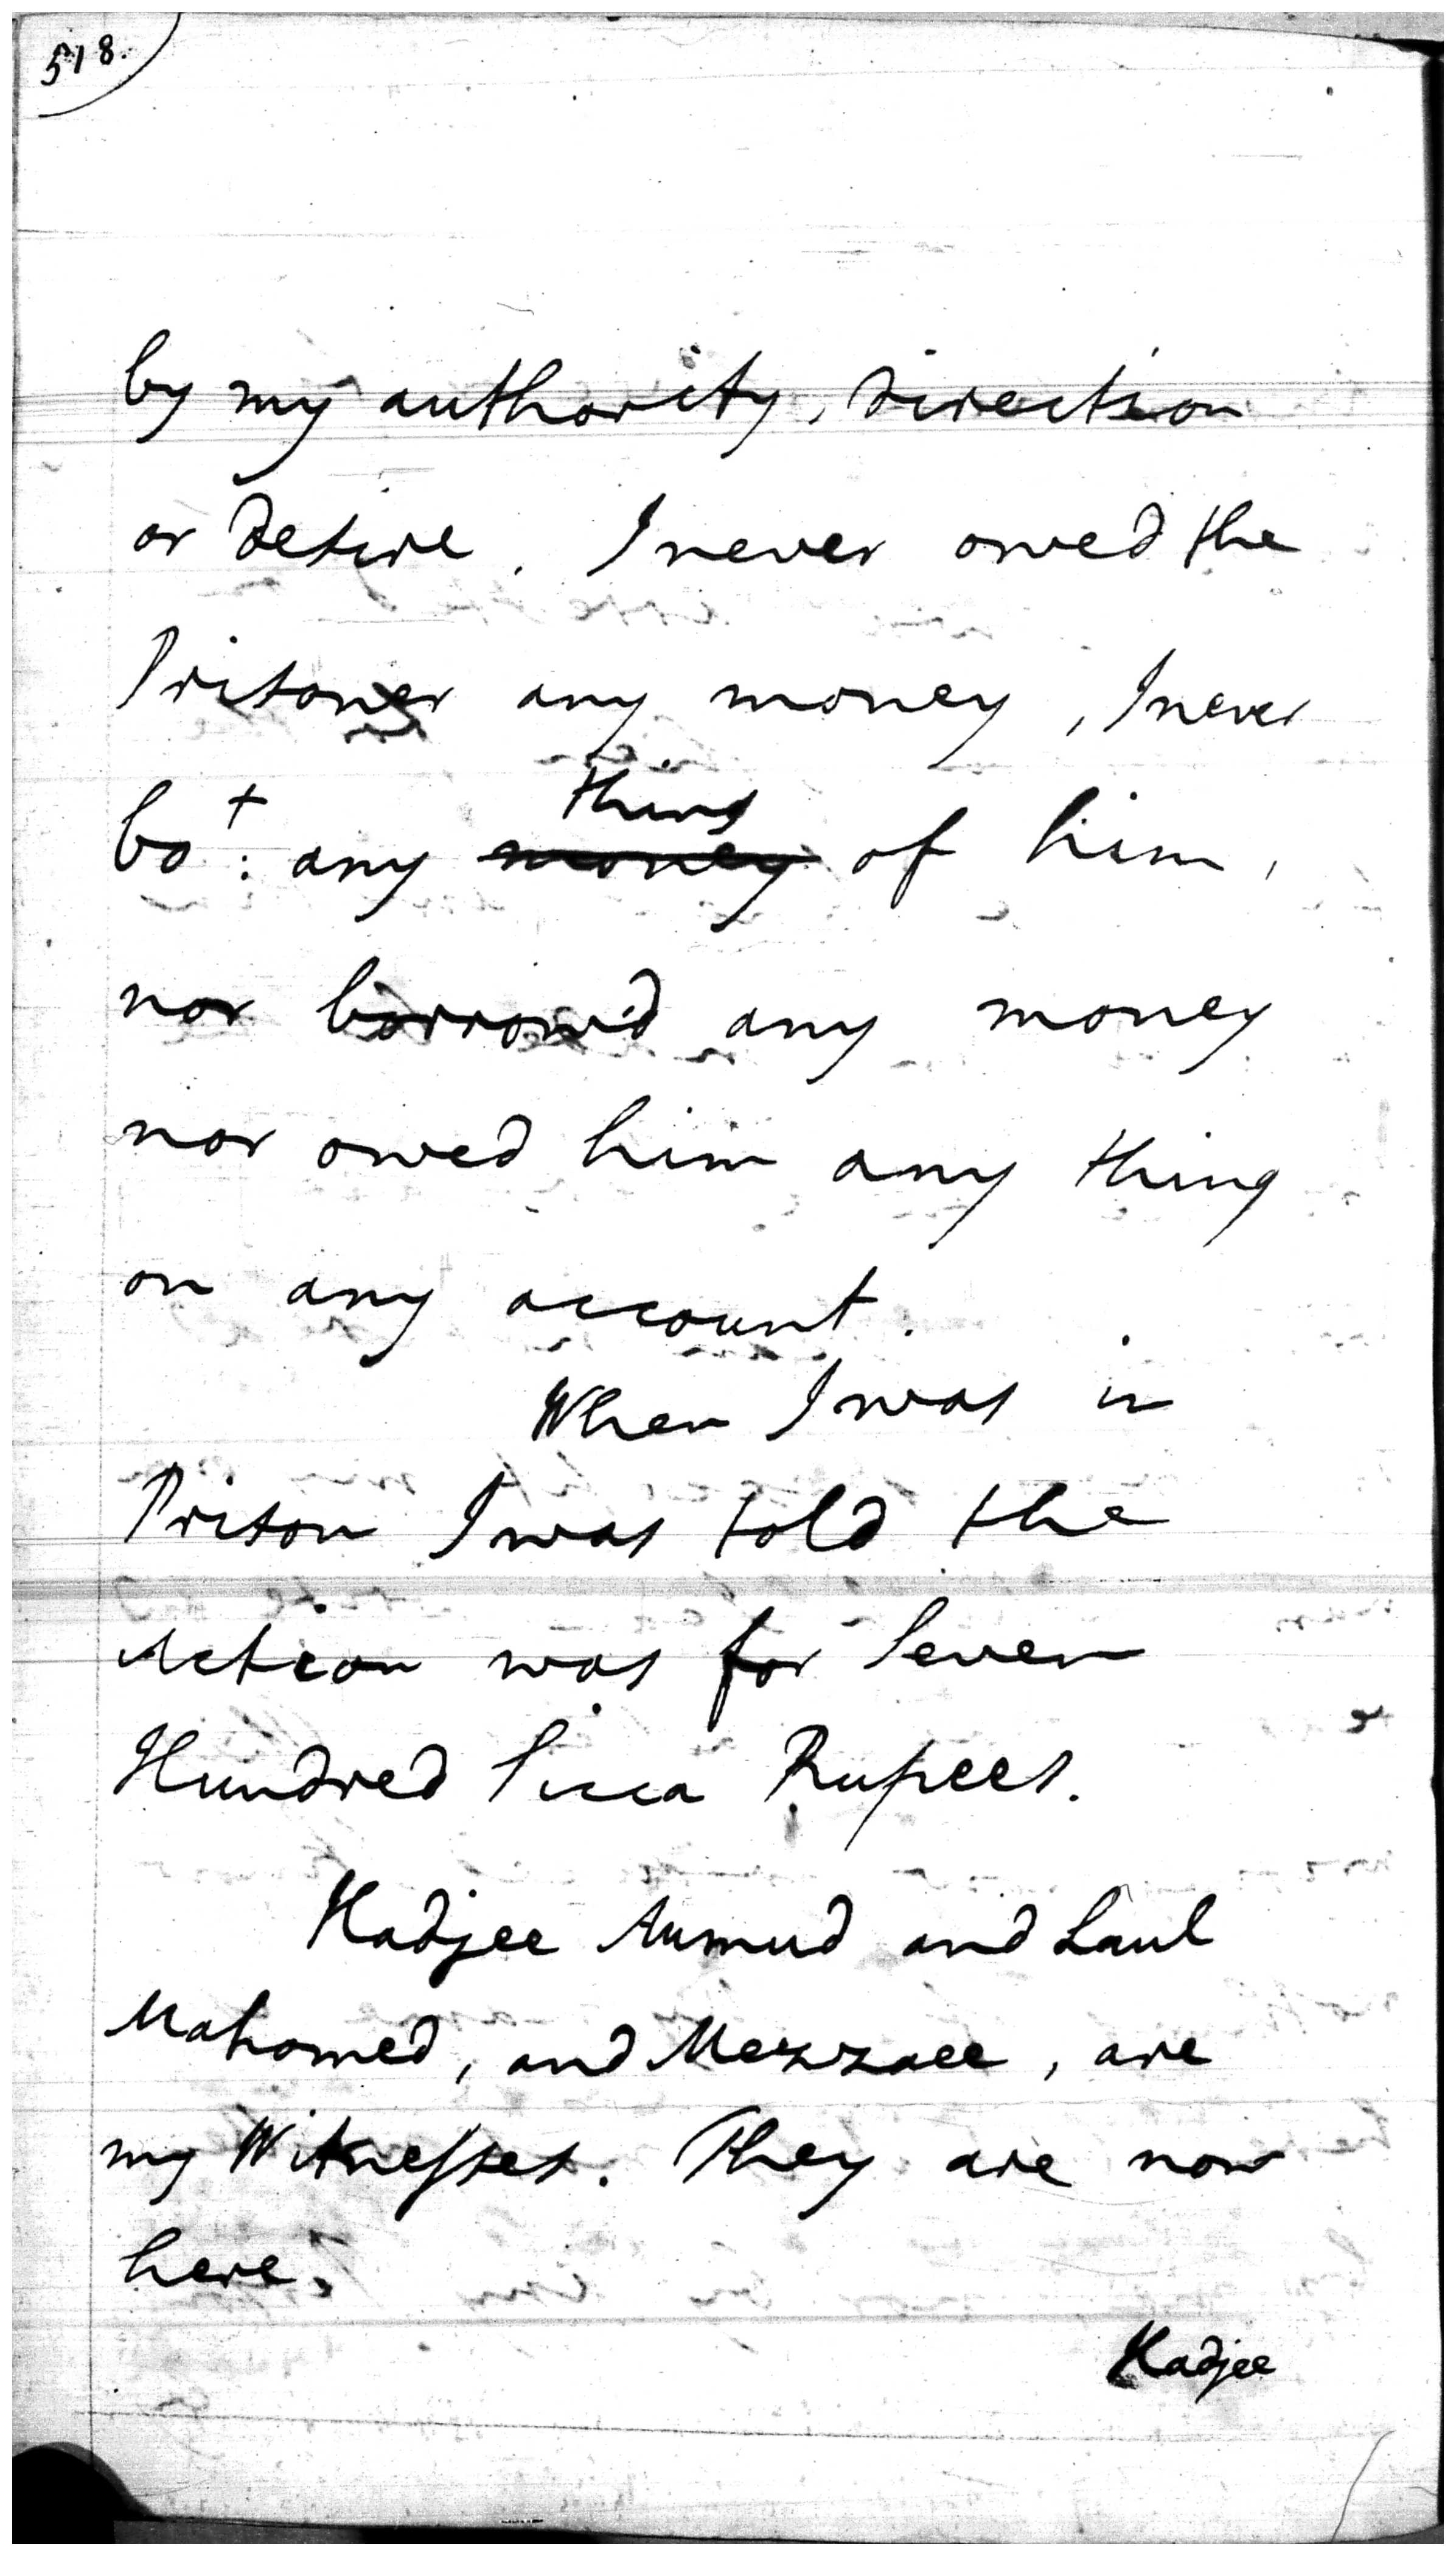 518.
by my authority, direction
or desire. I never owed the
Prisoner any money, I never
thing
bo^t: any ~~money~~ of him,
nor borrow'd any money
nor owed him any thing
on any account.
When I was in
Prison I was told the
Action was for Seven
Hundred Sicca Rupees.
Hadjee Aumud and Laul
Mahomed, and Mezzaee, are
my Witnesses. They are now
here.
Hadjee